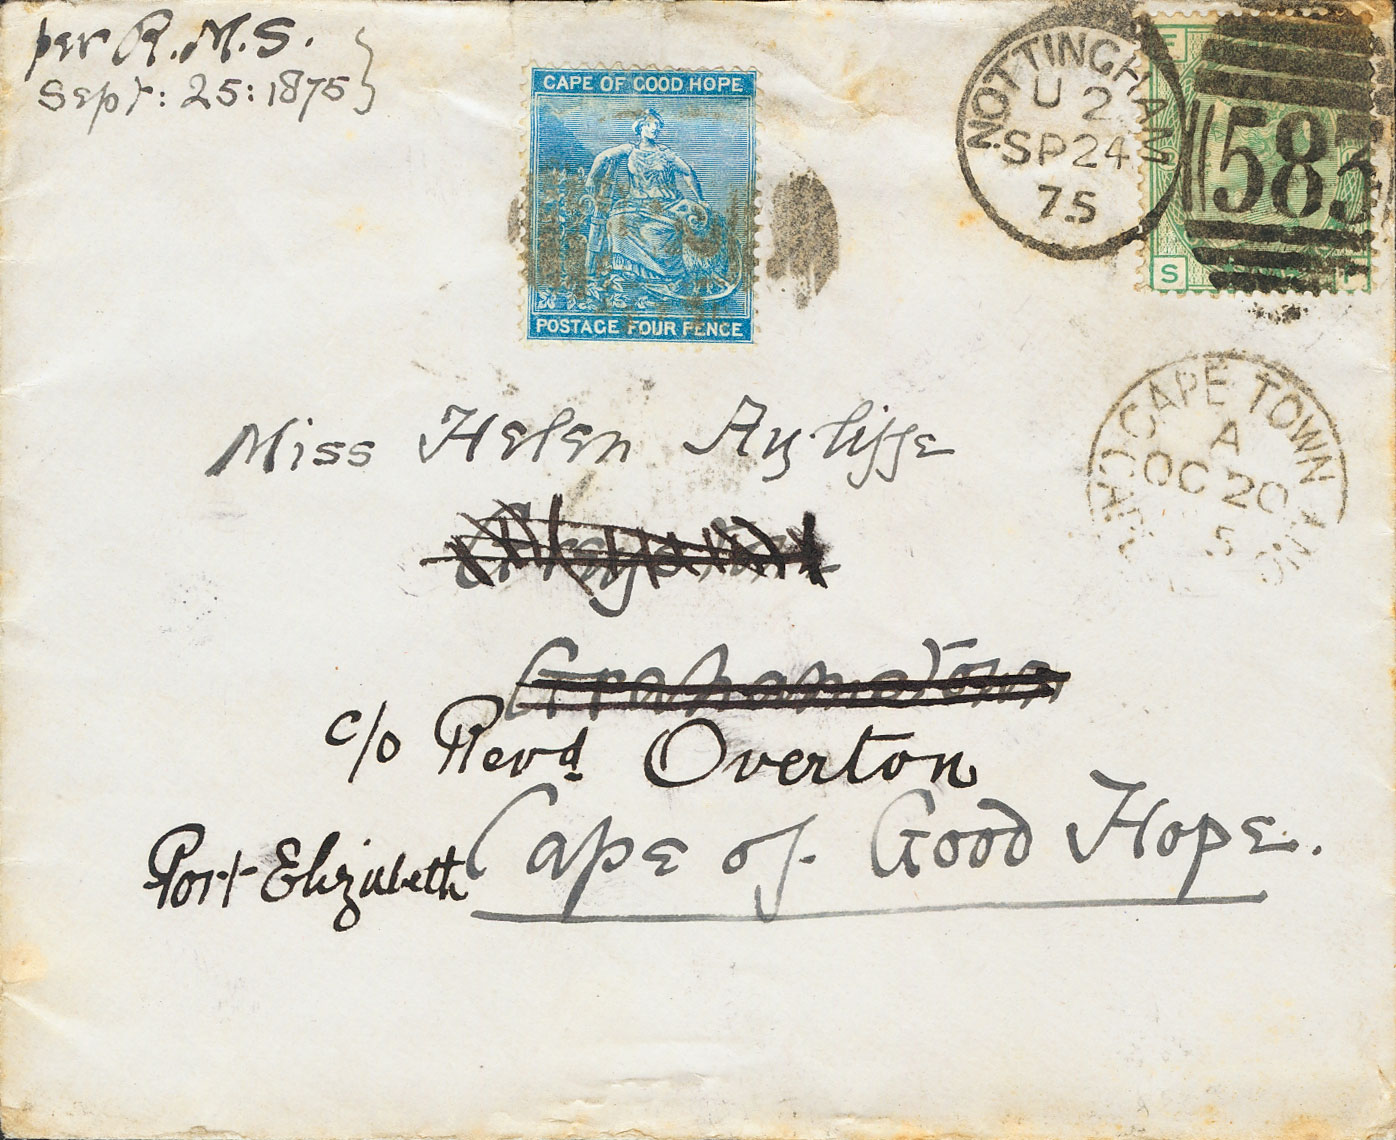 per R.M.S.
Sept: 25: 1875
CAPE OF GOOD HOPE
POSTAGE FOUR PENCE
NOTTINGHAM
U 2
SP 24
75
583
F
S
Miss Helen Ayliffe
Grahamstown
c/o Revd Overton
Port Elizabeth Cape of Good Hope.
CAPE TOWN
A
OC 20
5